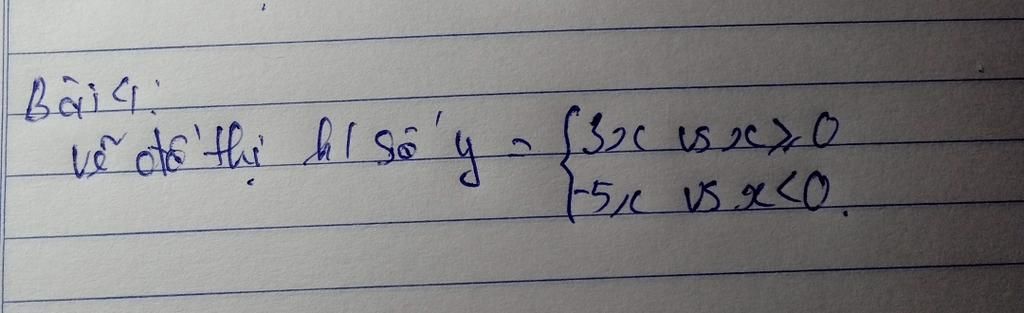 Bài 4:
vẽ đồ thị h/số y = {3x vs x ≥ 0
-5x vs x < 0.